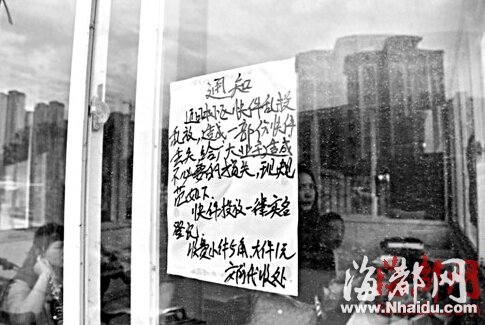 通知
近日小区快件乱投
乱放,造成一部份快件
丢失给广大业主造成
不必要的损失,现规
范如下:
快件投放一律实名
登记,
收费小件5角,大件1元
代收处
海都网
www.Nhaidu.com